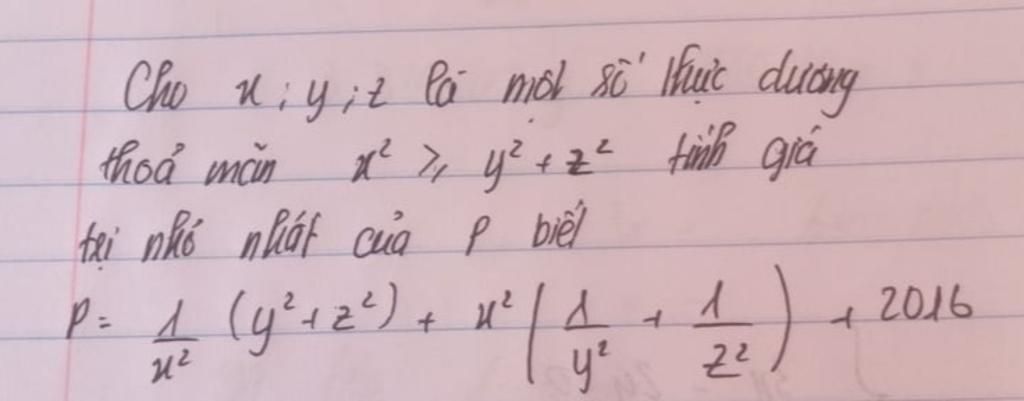 Cho x; y; z là một số thực dương
thoả mãn x² ≥ y² + z² tính giá
trị nhỏ nhất của P biết
P = 1/x² (y² + z²) + x² (1/y² + 1/z²) + 2016